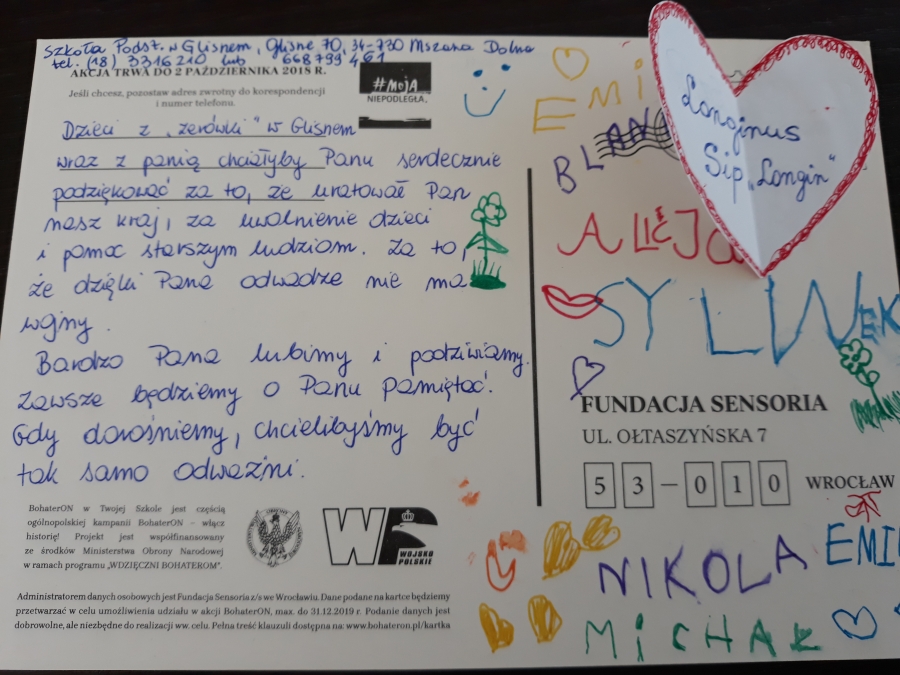 Szkoła Podst. w Glisnem, Glisne 70, 34-730 Mszana Dolna
tel. (18) 3316210 lub 668799461
AKCJA TRWA DO 2 PAŹDZIERNIKA 2018 R.
Jeśli chcesz, pozostaw adres zwrotny do korespondencji
i numer telefonu.
#MOJA
NIEPODLEGŁA
Dzieci z „zerówki" w Glisnem
wraz z panią chciałyby Panu serdecznie
podziękować za to, że uratował Pan
nasz kraj, za uwolnienie dzieci
i pomoc starszym ludziom. Za to,
że dzięki Pana odwadze nie ma
wojny.
Bardzo Pana lubimy i podziwiamy.
Zawsze będziemy o Panu pamiętać.
Gdy dorośniemy, chcielibyśmy być
tak samo odważni.
BohaterON w Twojej Szkole jest częścią
ogólnopolskiej kampanii BohaterON – włącz
historię! Projekt jest współfinansowany
ze środków Ministerstwa Obrony Narodowej
w ramach programu „WDZIĘCZNI BOHATEROM".
WP
WOJSKO
POLSKIE
Administratorem danych osobowych jest Fundacja Sensoria z/s we Wrocławiu. Dane podane na kartce będziemy
przetwarzać w celu umożliwienia udziału w akcji BohaterON, max. do 31.12.2019 r. Podanie danych jest
dobrowolne, ale niezbędne do realizacji ww. celu. Pełna treść klauzuli dostępna na: www.bohateron.pl/kartka
Longinus
Sip „Longin"
EMI
BLAN
ALICJA
SYLWEK
FUNDACJA SENSORIA
UL. OŁTASZYŃSKA 7
53-010 WROCŁAW
EMI
NIKOLA
MICHAŁ